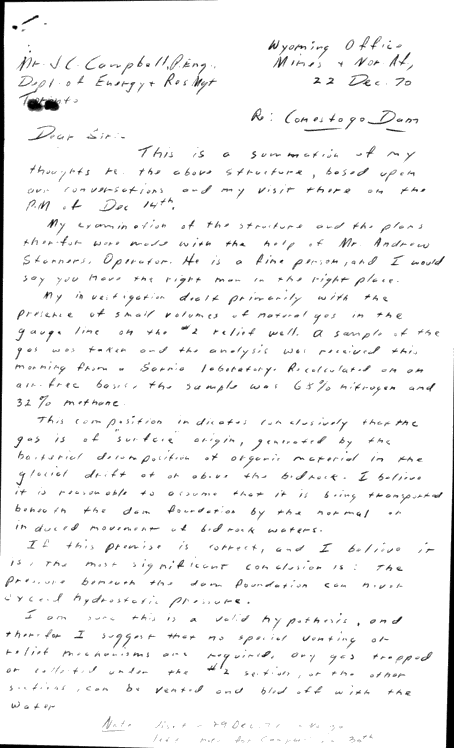 Wyoming Office
Mr. J C. Campbell, P.Eng., Mines & Nor Af,
Dept. of Energy & Res Mgt 22 Dec. 70
Toronto
Re: Conestogo Dam
Dear Sir:-
This is a summation of my
thoughts re. the above structure, based upon
our conversations, and my visit there on the
P.M of Dec 14th.
My examination of the structure and the plans
therefor were made with the help of Mr Andrew
Operator. He is a fine person, and I would
say you have the right man in the right place.
My investigation dealt primarily with the
presence of small volumes of natural gas in the
gauge line on the #2 relief well. A sample of the
gas was taken and the analysis was received this
morning from a Sarnia laboratory. Recalculated on an
air-free basis, the sample was 65% nitrogen and
32% methane.
This composition indicates conclusively that the
gas is of "surface" origin, generated by the
bacterial decomposition of organic material in the
glacial drift at or above the bedrock. I believe
it is reasonable to assume that it is being transported
beneath the dam foundation by the normal or
induced movement of bedrock waters.
If this premise is correct, and I believe it
is, the most significant conclusion is: The
pressure beneath the dam foundation can never
exceed hydrostatic pressure.
I am sure this is a valid hypothesis, and
therefor I suggest that no special venting or
relief mechanisms are required. Any gas trapped
or collected under the #2 section, or the other
sections, can be vented and bled off with the
water
Note 29 Dec.
for 30th